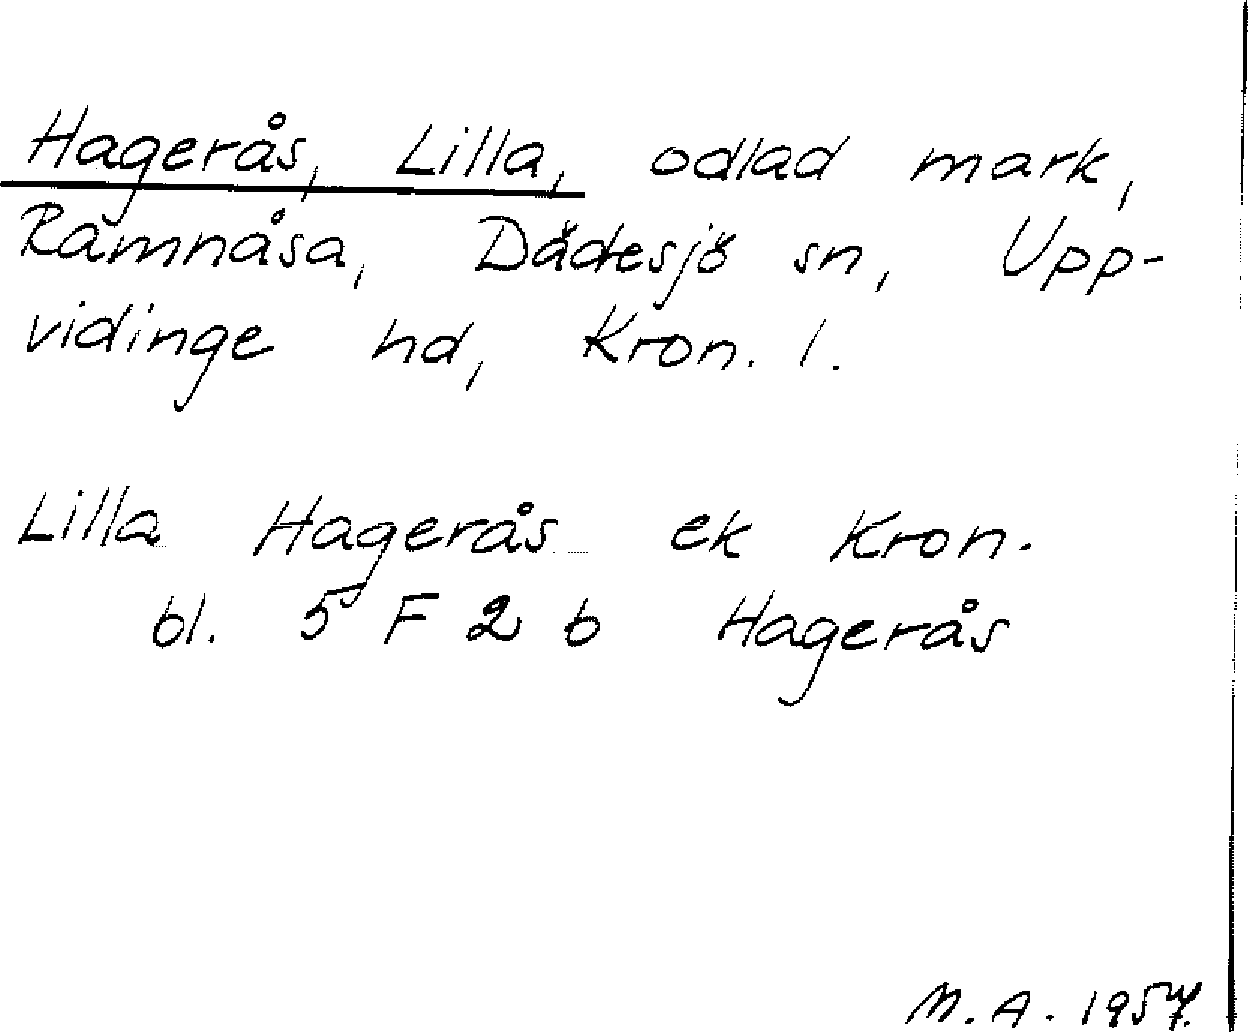 Hagerås, Lilla, odlad mark,
Ramnåsa, Dädesjö sn, Upp-
vidinge hd, Kron. l.
Lilla Hagerås ek Kron.
bl. 5 F 2 b Hagerås
M. A. 1957.